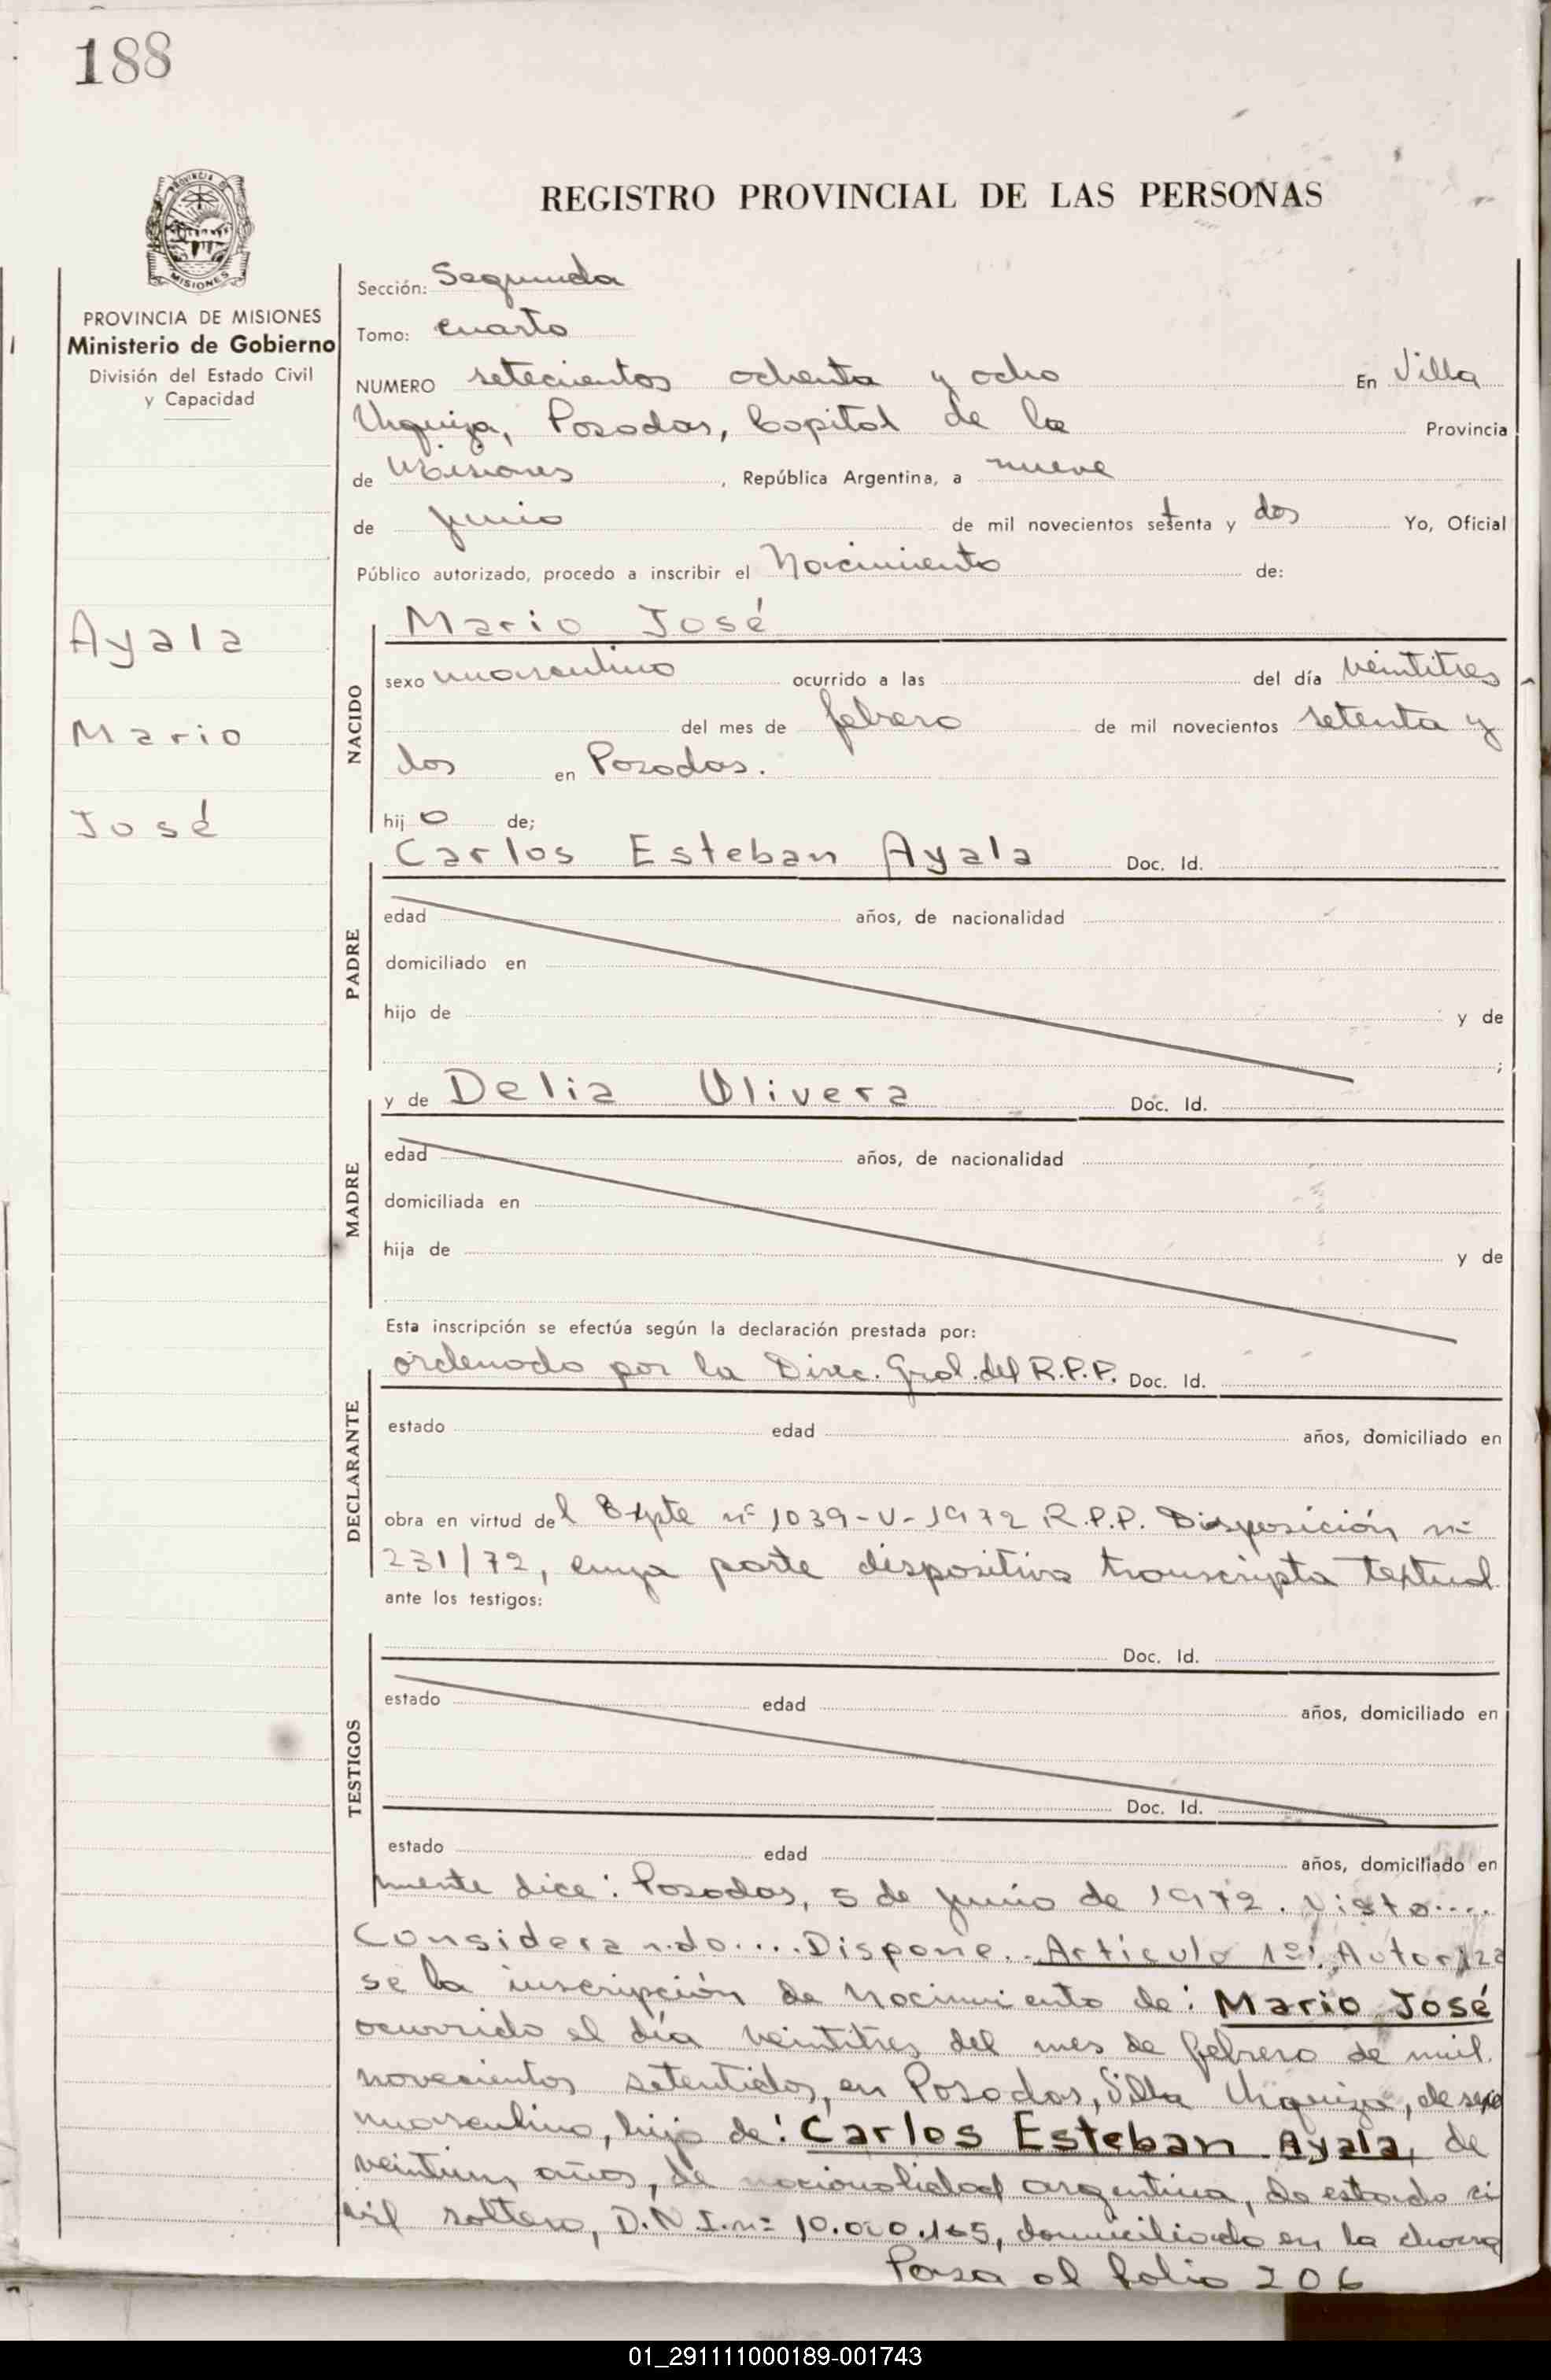 188
PROVINCIA DE
MISIONES
PROVINCIA DE MISIONES
Ministerio de Gobierno
División del Estado Civil
y Capacidad
Ayala
Mario
José
REGISTRO PROVINCIAL DE LAS PERSONAS
Sección: Segunda
Tomo: cuarto
NUMERO setecientos ochenta y ocho En Villa
Urquiza, Posadas, Capital de la Provincia
de Misiones, República Argentina, a nueve
de junio de mil novecientos setenta y dos Yo, Oficial
Público autorizado, procedo a inscribir el Nacimiento de:
NACIDO
Mario José
sexo masculino ocurrido a las del día veintitres
del mes de febrero de mil novecientos setenta y
dos en Posadas.
hijo de;
PADRE
Carlos Esteban Ayala Doc. Id.
edad años, de nacionalidad
domiciliado en
hijo de y de
;
MADRE
y de Delia Olivera Doc. Id.
edad años, de nacionalidad
domiciliada en
hija de y de
Esta inscripción se efectúa según la declaración prestada por:
DECLARANTE
ordenado por la Direc. Gral. del R.P.P. Doc. Id.
estado edad años, domiciliado en
obra en virtud del Expte nº 1039-V-1972 R.P.P. Disposición nº
231/72, cuya parte dispositiva transcripta textual
ante los testigos:
TESTIGOS
Doc. Id.
estado edad años, domiciliado en
Doc. Id.
estado edad años, domiciliado en
mente dice: Posadas, 5 de junio de 1972. Visto....
Considerando.... Dispone.. Artículo 1º: Autoriza
se la inscripción de nacimiento de: Mario José
ocurrido el día veintitres del mes de febrero de mil
novecientos setentidos, en Posadas, Villa Urquiza, de sexo
masculino, hijo de: Carlos Esteban Ayala, de
veintiun años, de nacionalidad argentina, de estado ci
vil soltero, D.N.I. nº domiciliado en la chacra
Pasa al folio 206
01_291111000189-001743